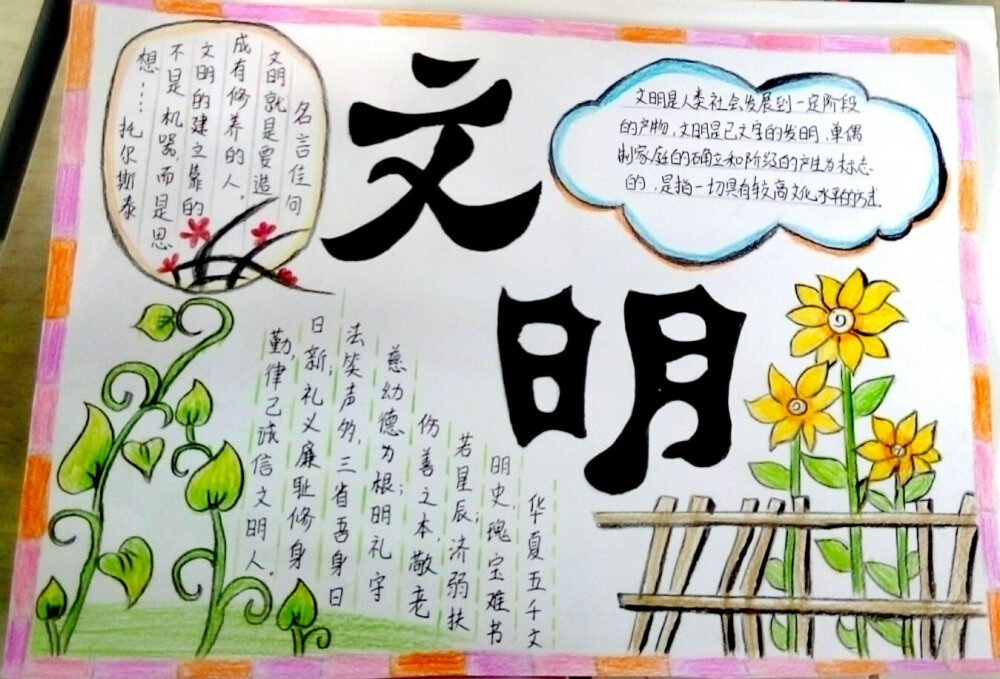 名言佳句
文明就是要造
成有修养的人。
文明的建立靠的
不是机器,而是思
想……托尔斯泰
文明
文明是人类社会发展到一定阶段
的产物,文明是已文字的发明,单偶
制家庭的确立和阶级的产生为标志
的,是指一切具有较高文化水平的方法.
华夏五千文
明史,瑰宝难书
若星辰;济弱扶
伤善之本,敬老
慈幼德为根;明礼守
法笑声多,三省吾身日
日新;礼义廉耻修身
勤,律己诚信文明人。